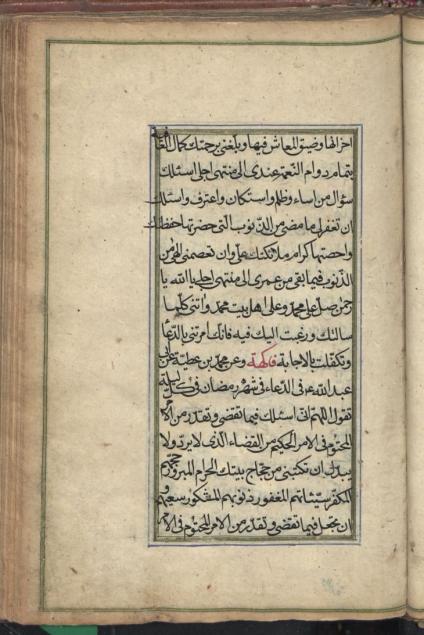 احزانها وضيق المعاش فيها وبلغنى برحمتك كمال العافية
بتمام دوام النعمة عندى الى منتهى اجلى اسئلك
سؤال من اساء وظلم واستكان واعترف واسئلك
ان تغفر لى ما مضى من الذنوب التى حضرتها حفظتك
واحصتها كرام ملائكتك على وان تعصمنى الهى من
الذنوب فيما بقى من عمرى الى منتهى اجلى يا الله يا
رحمن صل على محمد وعلى اهل بيت محمد واتنى كلما
سالتك ورغبت اليك فيه فانك امرتنى بالدعا
وتكفلت بالاجابة فاكهة وعن محمد بن عطية عن ابى
عبد الله ع فى الدعاء فى شهر رمضان فى كل ليلة
تقول اللهم انى اسئلك فيما تقضى وتقدر من الامر
المحتوم فى الامر الحكيم من القضاء الذى لا يرد ولا
يبدل ان تكتبنى من حجاج بيتك الحرام المبرور حجهم
المكفر سيئاتهم المغفور ذنوبهم المشكور سعيهم و
ان تجعل فيما تقضى وتقدر من الامر المحتوم فى الامر